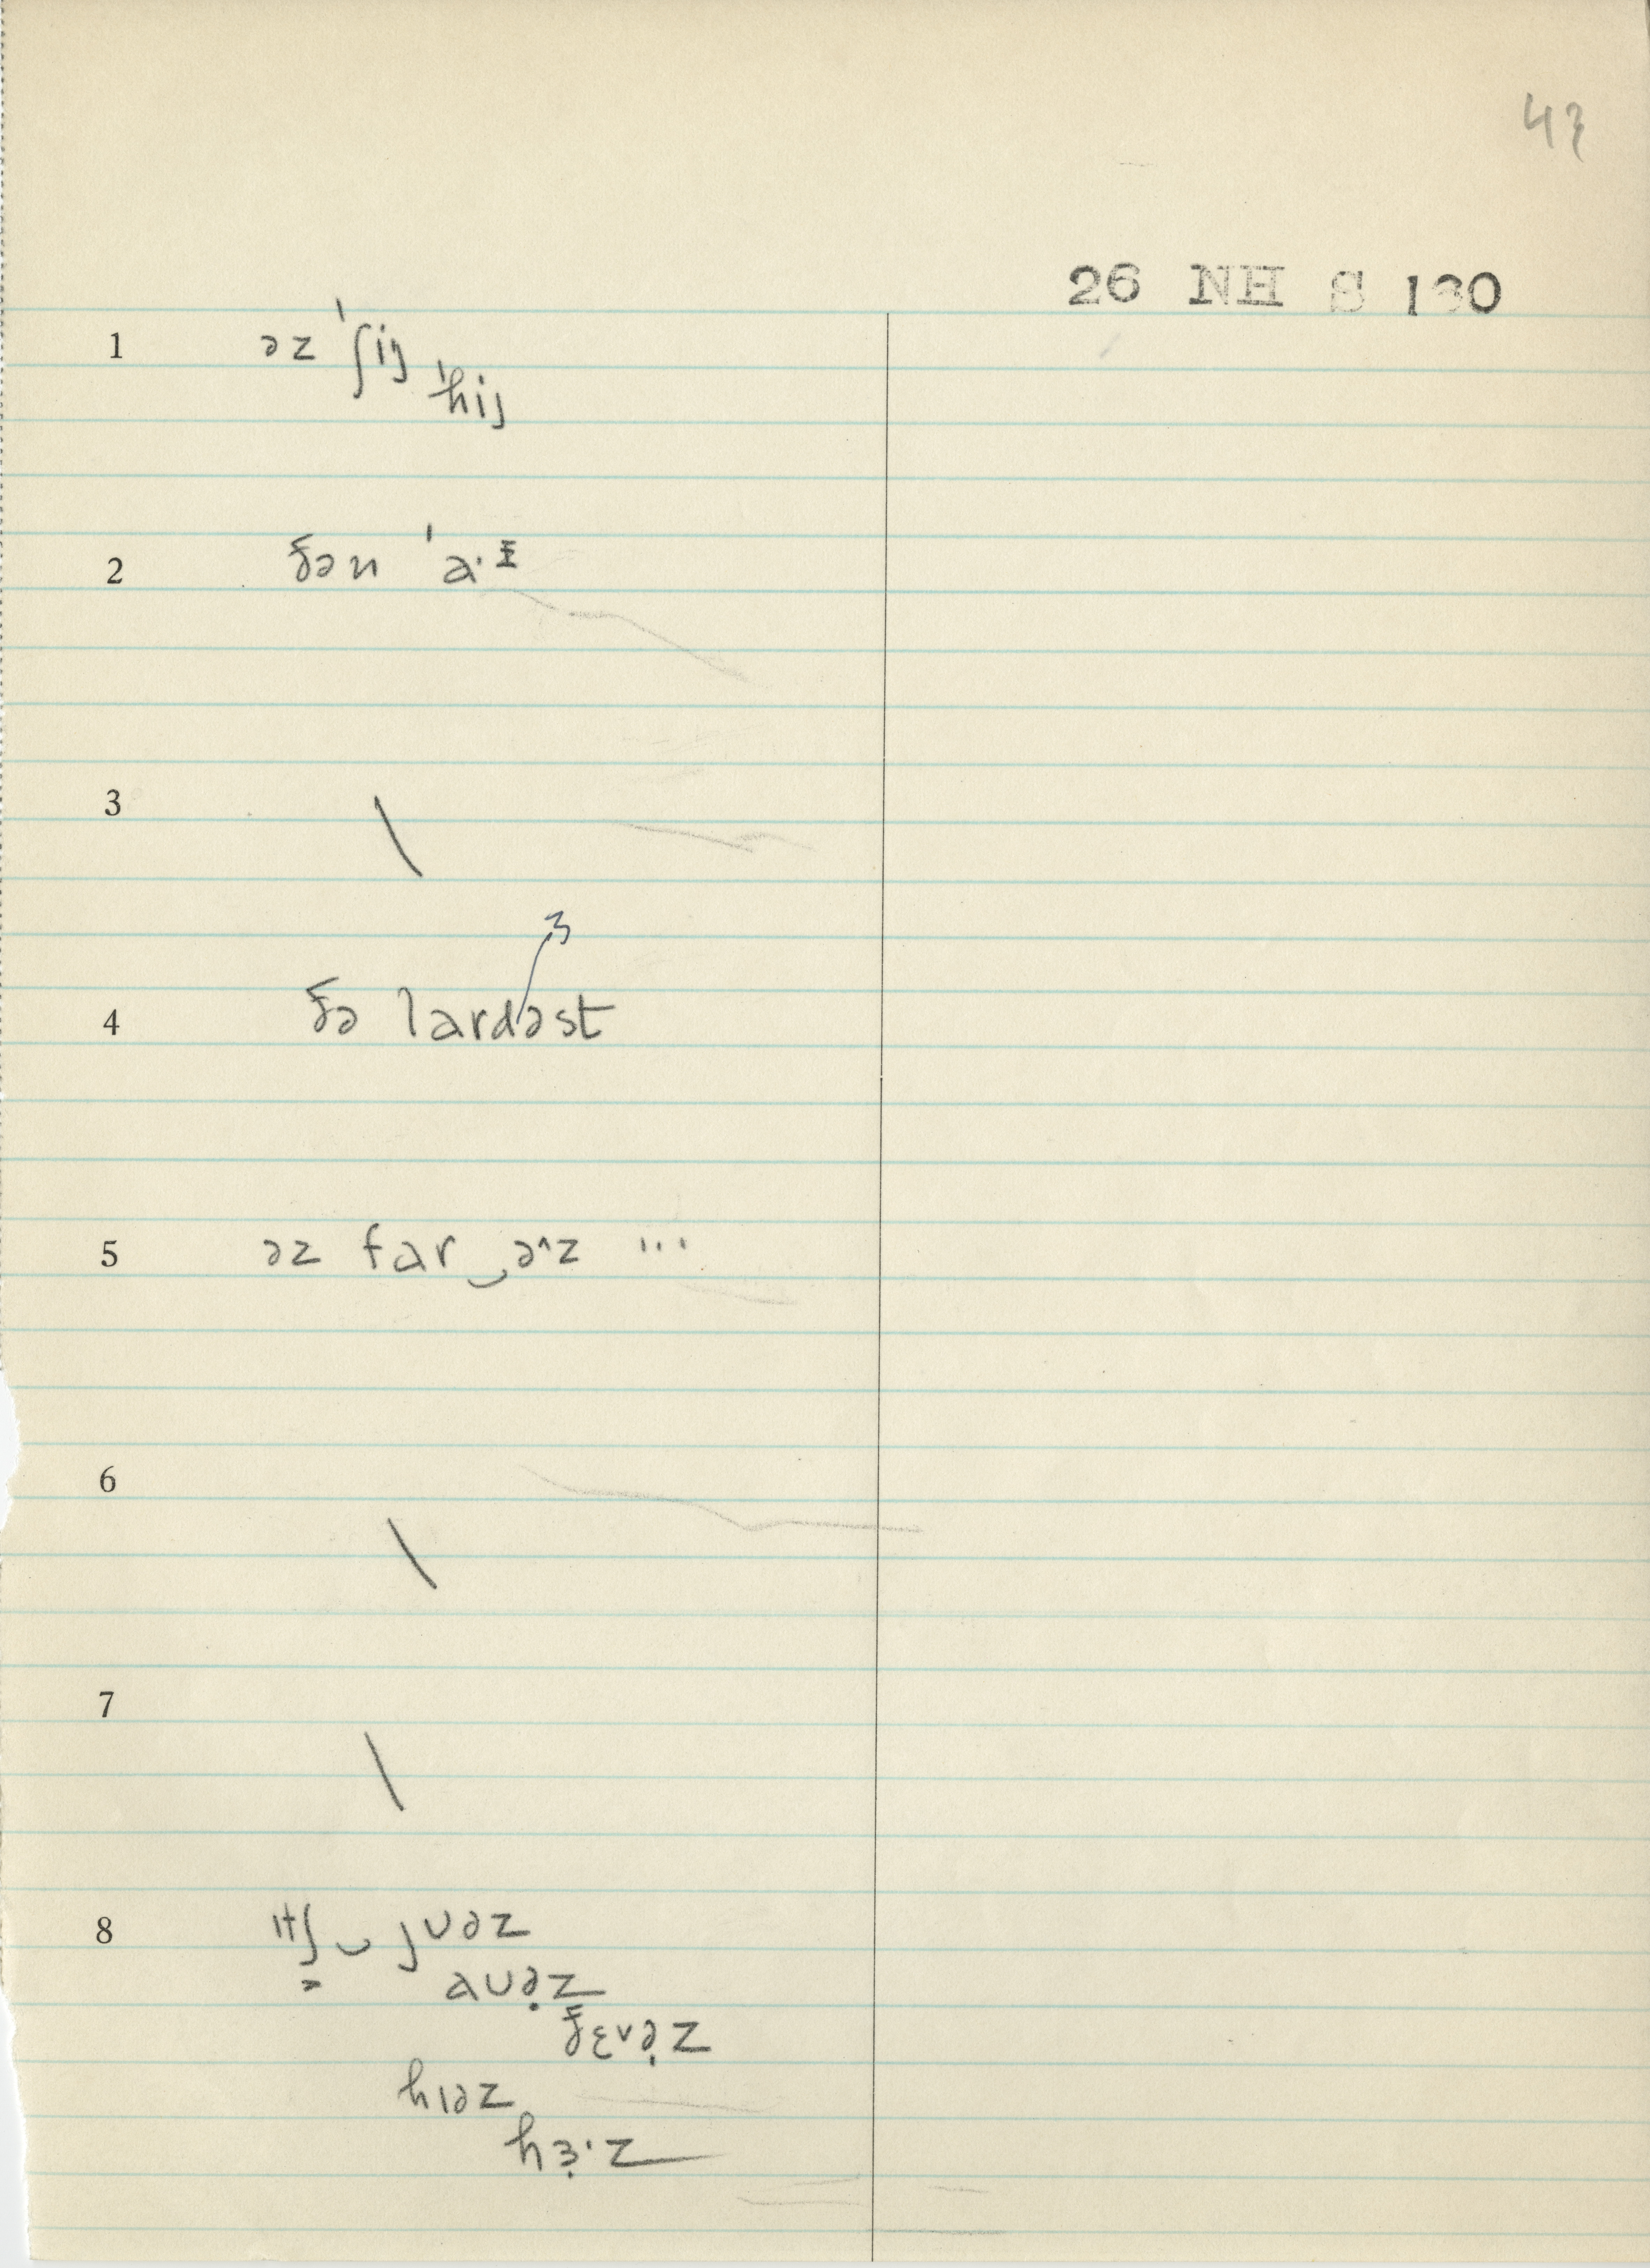 43
26 NH S 130
1 əz ˈʃij
ˈhij
2 ðən ˈa·ɪ
3 \
4 ðə lardəst
ɜ
5 əz far‿əˆz ...
6 \
7 \
8 ‿jʊəz
aʊə̣z
ðɛvə̣z
hɪəz
hɜ̣·z